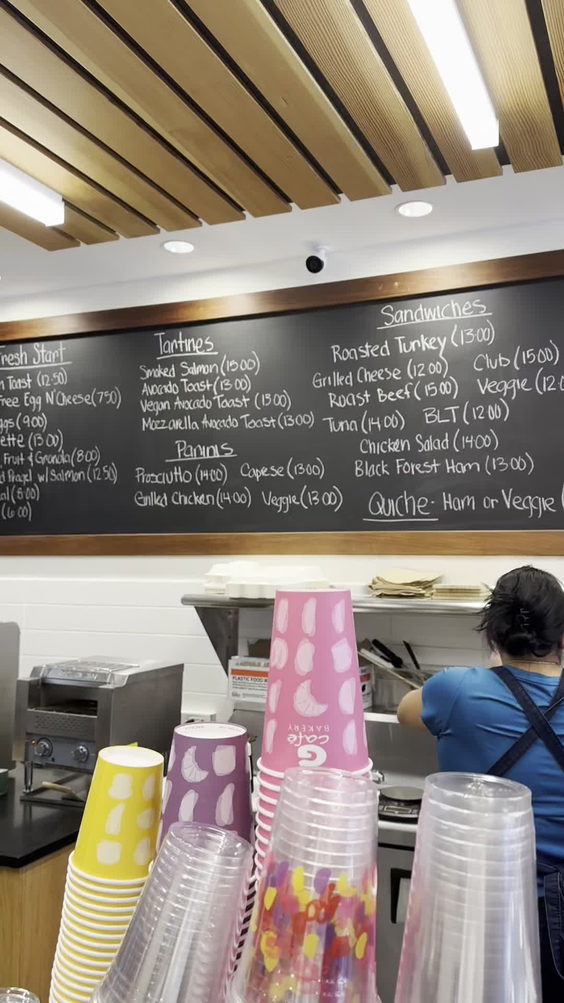 Fresh Start
Toast (12.50)
Free Egg N'Cheese (7.50)
(9.00)
(13.00)
Fruit & Granola (8.00)
Bagel w/Salmon (12.50)
(6.00)
Tartines
Smoked Salmon (15.00)
Avocado Toast (13.00)
Vegan Avocado Toast (13.00)
Mozzarella Avocado Toast (13.00)
Paninis
Prosciutto (14.00) Caprese (13.00)
Grilled Chicken (14.00) Veggie (13.00)
Sandwiches
Roasted Turkey (13.00)
Grilled Cheese (12.00) Club (15.00)
Roast Beef (15.00) Veggie (12.0
Tuna (14.00) BLT (12.00)
Chicken Salad (14.00)
Black Forest Ham (13.00)
Quiche - Ham or Veggie (
PLASTIC FOOD
G
café
BAKERY